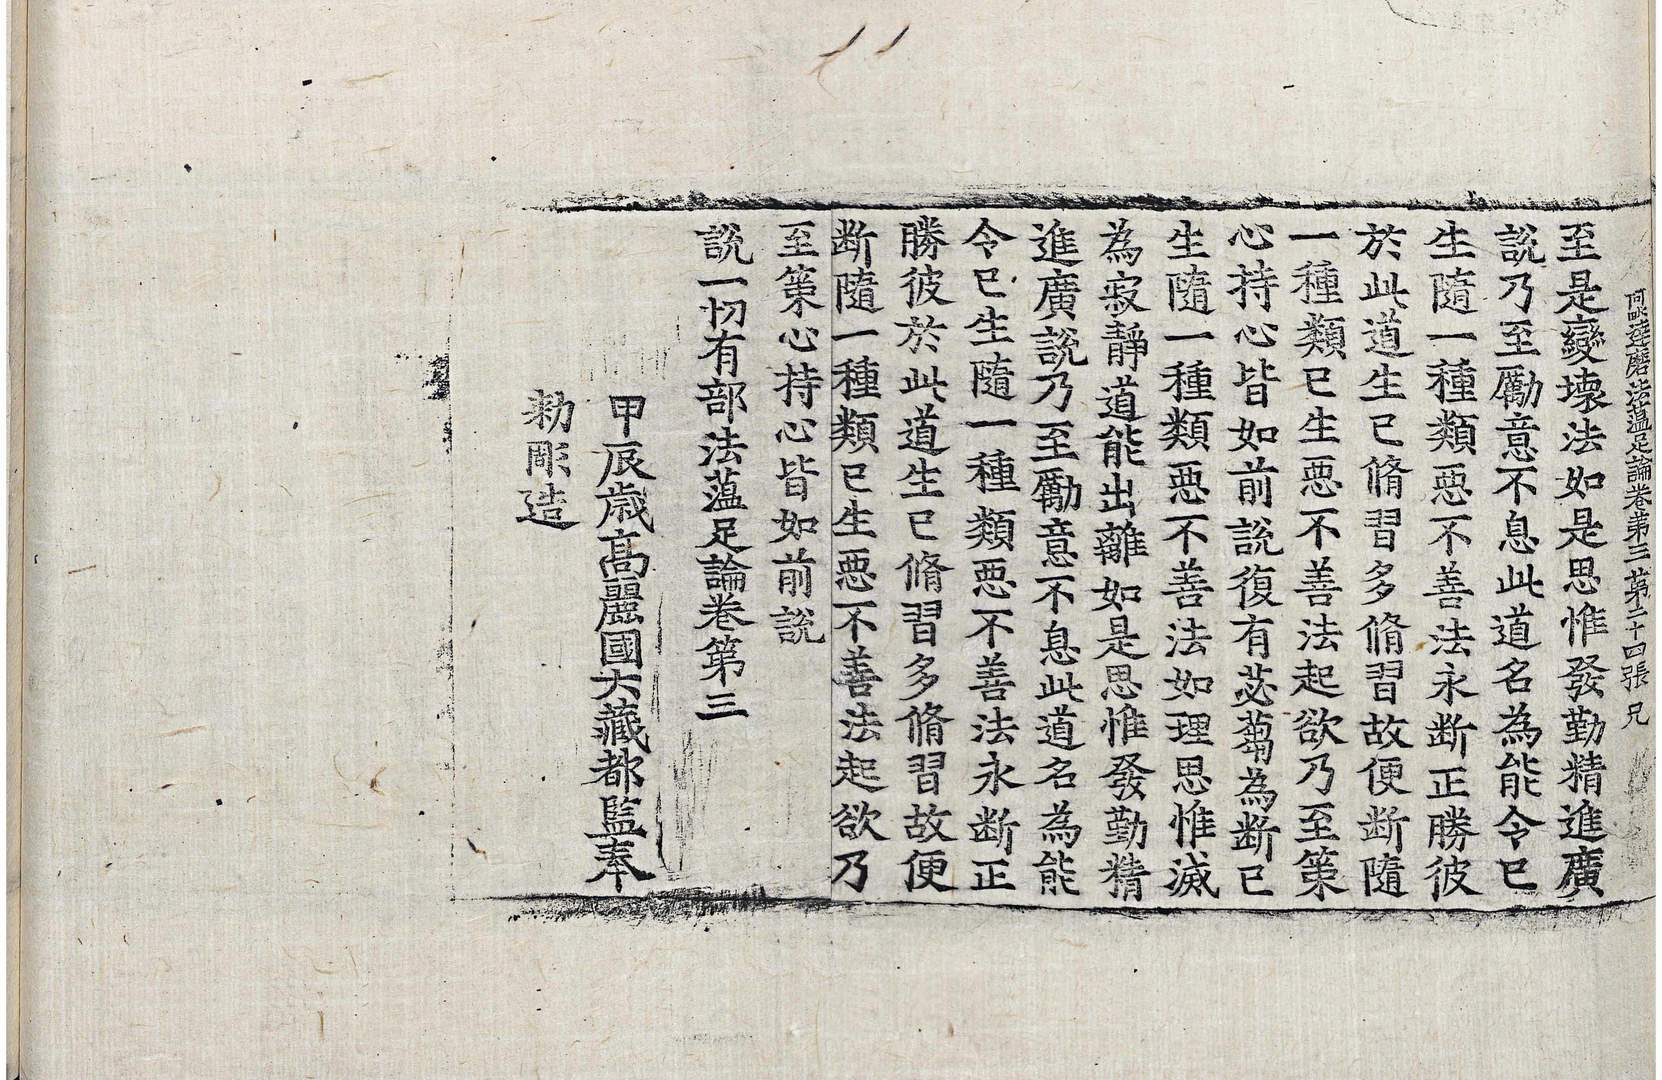 阿毗達磨法蕰足論卷苐三 苐二十四張 兄
至是變壞法如是思惟發勤精進廣
說乃至勵意不息此道名為能令已
生隨一種類惡不善法永斷正勝彼
於此道生已脩習多脩習故便斷隨
一種類已生惡不善法起欲乃至策
心持心皆如前說復有苾蒭為斷已
生隨一種類惡不善法如理思惟滅
為寂靜道能出離如是思惟發勤精
進廣說乃至勵意不息此道名為能
令已生隨一種類惡不善法永斷正
勝彼於此道生已脩習多脩習故便
斷隨一種類已生惡不善法起欲乃
至策心持心皆如前說
說一切有部法蕰足論卷第三
甲辰歲高麗國大藏都監奉
勑彫造